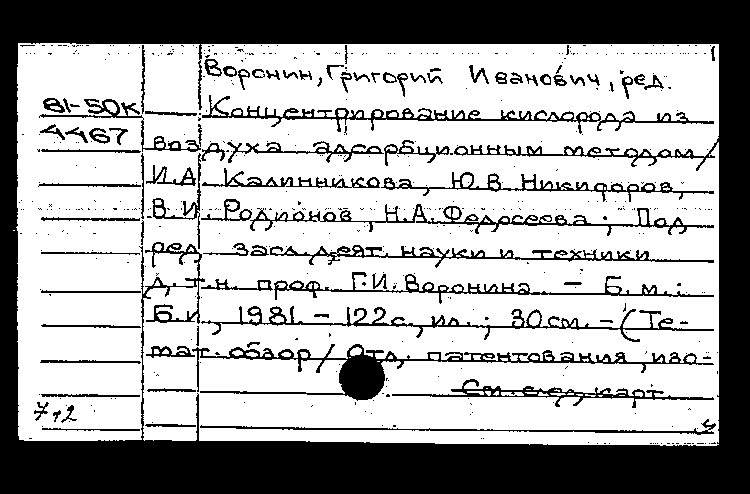 Воронин, Григорий Иванович, ред.
81-50к
4467
Концентрирование кислорода из
воздуха адсорбционным методом /
И.А. Калинникова, Ю.В. Никифоров,
В.И. Родионов, Н.А. Федосеева ; Под
ред. засл. деят. науки и техники
д.т.н. проф. Г.И. Воронина. – Б.м.:
Б.и., 1981. – 122 с., ил.; 30 см. – (Те-
мат. обзор / Отд. патентования, изо-
См. след. карт.